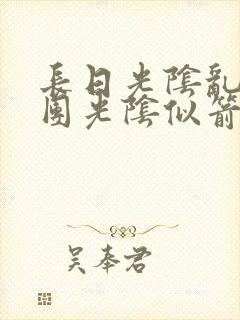 長日光陰亂
團光陰似箭
吳奉君